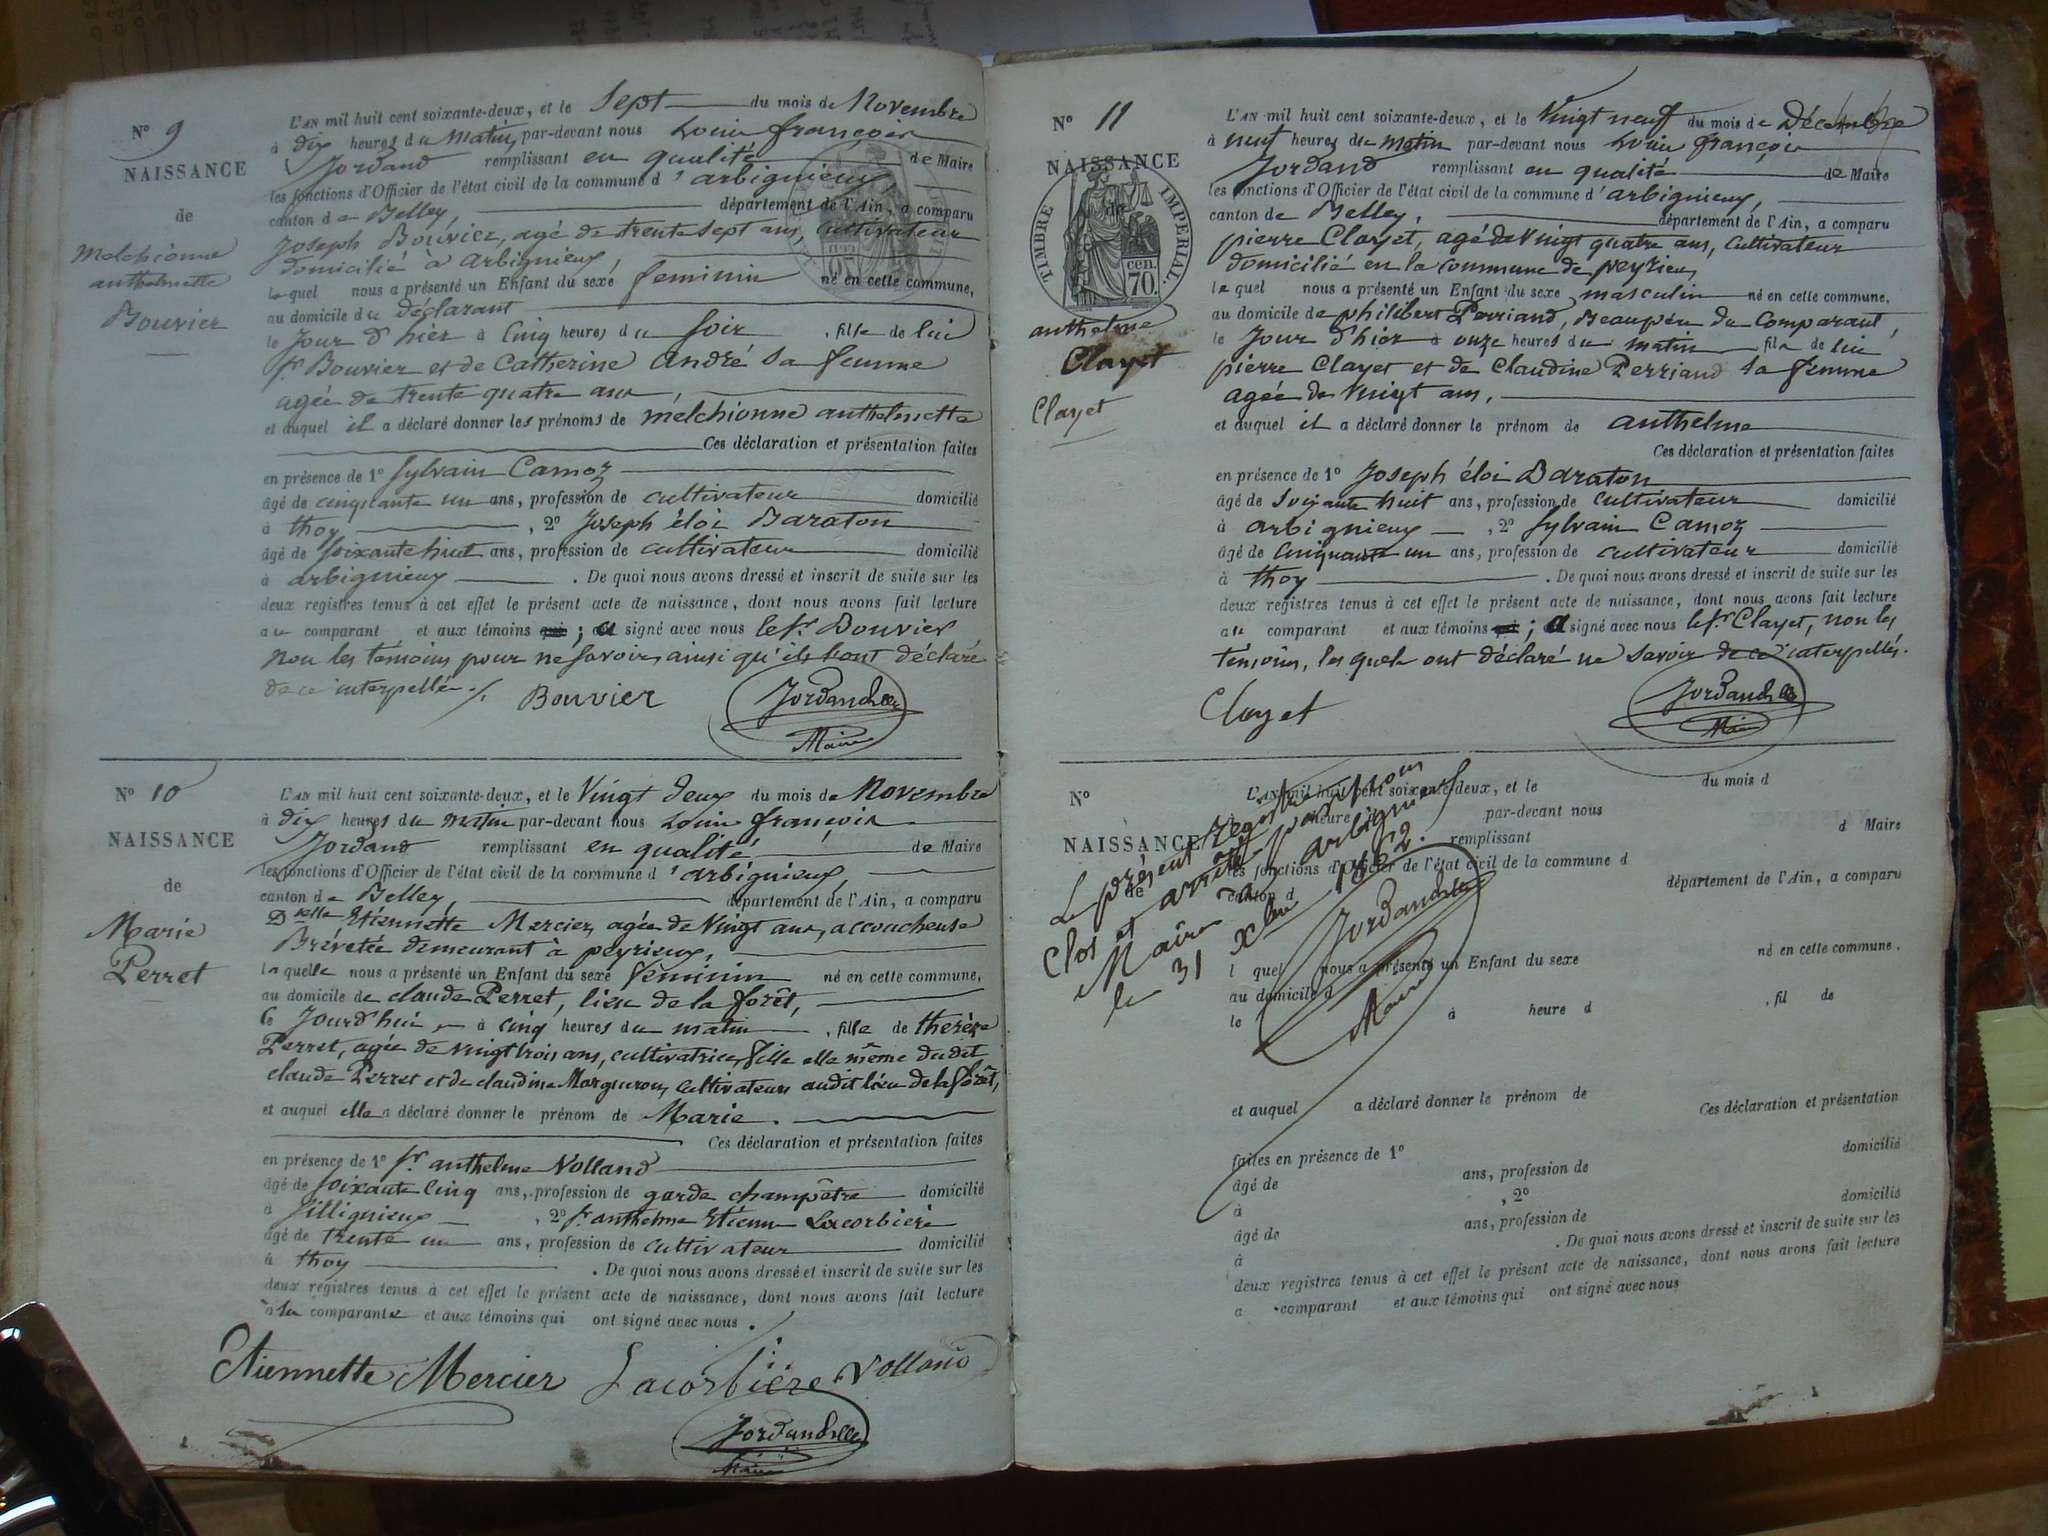 N° 9
NAISSANCE
de
Melchionne
anthelmette
Bouvier
L'AN mil huit cent soixante-deux, et le Sept du mois de Novembre
à dix heures du matin, par-devant nous Louis françois
Jordand remplissant en qualité de Maire
les fonctions d'Officier de l'état civil de la commune d'arbignieux,
canton de Belley, département de l'Ain, a comparu
Joseph Bouvier, agé de trente sept ans, cultivateur
domicilié à arbignieux,
lequel nous a présenté un Enfant du sexe feminin né en cette commune,
au domicile du déclarant
le Jour d'hier à Cinq heures du soir, fille de lui
Sr Bouvier et de Catherine andré sa femme
agée de trente quatre ans,
et auquel il a déclaré donner les prénoms de melchionne anthelmette
Ces déclaration et présentation faites
en présence de 1° Sylvain Camoz
âgé de cinquante un ans, profession de cultivateur domicilié
à thoy, 2° Joseph éloi Baraton
âgé de soixante huit ans, profession de cultivateur domicilié
à arbignieux. De quoi nous avons dressé et inscrit de suite sur les
deux registres tenus à cet effet le présent acte de naissance, dont nous avons fait lecture
au comparant et aux témoins qui ; a signé avec nous le Sr Bouvier
non les témoins pour ne savoir, ainsi qu'ils l'ont déclaré
de ce interpellés ./.
Bouvier Jordand
Maire
N° 10
NAISSANCE
de
Marie
Perret
L'AN mil huit cent soixante-deux, et le Vingt deux du mois de Novembre
à dix heures du matin par-devant nous Louis françois
Jordand remplissant en qualité de Maire
les fonctions d'Officier de l'état civil de la commune d'arbignieux,
canton de Belley, département de l'Ain, a comparu
Delle Etiennette Mercier, agée de Vingt ans, accoucheuse
Brévetée demeurant à peyrieux,
laquelle nous a présenté un Enfant du sexe féminin né en cette commune,
au domicile de claude Perret, lieu de la forêt,
le Jourd'hui à cinq heures du matin, fille de therèze
Perret, agée de vingt trois ans, cultivatrice, fille elle même dudit
claude Perret et de claudine Margueron, cultivateurs audit lieu de la forêt,
et auquel elle a déclaré donner le prénom de Marie.
Ces déclaration et présentation faites
en présence de 1° Sr anthelme Volland
âgé de soixante cinq ans, profession de garde champêtre domicilié
à Sillignieux, 2° Sr anthelme Etienne Lacorbière
âgé de trente un ans, profession de cultivateur domicilié
à thoy. De quoi nous avons dressé et inscrit de suite sur les
deux registres tenus à cet effet le présent acte de naissance, dont nous avons fait lecture
à la comparante et aux témoins qui ont signé avec nous.
Etiennette Mercier Lacorbière Volland
Jordand
Maire
N° 11
NAISSANCE
de
TIMBRE IMPERIAL.
70 cen.
anthelme
Clayet
Clayet
L'AN mil huit cent soixante-deux, et le Vingt neuf du mois de Décembre
à neuf heures du matin par-devant nous Louis françois
Jordand remplissant en qualité de Maire
les fonctions d'Officier de l'état civil de la commune d'arbignieux,
canton de Belley, département de l'Ain, a comparu
pierre Clayet, agé de Vingt quatre ans, Cultivateur
domicilié en la commune de peyrieu,
lequel nous a présenté un Enfant du sexe masculin né en cette commune,
au domicile de philibert Perriand, Beaupère du Comparant,
le Jour d'hier à onze heures du matin fils de lui
pierre Clayet et de Claudine Perriand sa femme
agée de Vingt ans,
et auquel il a déclaré donner le prénom de anthelme
Ces déclaration et présentation faites
en présence de 1° Joseph éloi Baraton
âgé de soixante huit ans, profession de cultivateur domicilié
à arbignieux, 2° Sylvain Camoz
âgé de cinquante un ans, profession de cultivateur domicilié
à thoy. De quoi nous avons dressé et inscrit de suite sur les
deux registres tenus à cet effet le présent acte de naissance, dont nous avons fait lecture
au comparant et aux témoins qui ; a signé avec nous le Sr Clayet, non les
témoins, lesquels ont déclaré ne savoir de ce interpellés.
Clayet Jordand
Maire
N°
NAISSANCE
de
L'AN mil huit cent soixante-deux, et le du mois d
heure par-devant nous
remplissant d Maire
les fonctions d'Officier de l'état civil de la commune d
canton d département de l'Ain, a comparu
l quel nous a présenté un Enfant du sexe né en cette commune.
au domicile d
le à heure d , fil de
et auquel a déclaré donner le prénom de
Ces déclaration et présentation
faites en présence de 1°
âgé de ans, profession de domicilié
à , 2°
âgé de ans, profession de domicilié
à . De quoi nous avons dressé et inscrit de suite sur les
deux registres tenus à cet effet le présent acte de naissance, dont nous avons fait lecture
a comparant et aux témoins qui ont signé avec nous
Le présent registre
Clos et arrêté par nous
Maire d'arbignieux
le 31 Xbre 1862.
Jordand
Maire